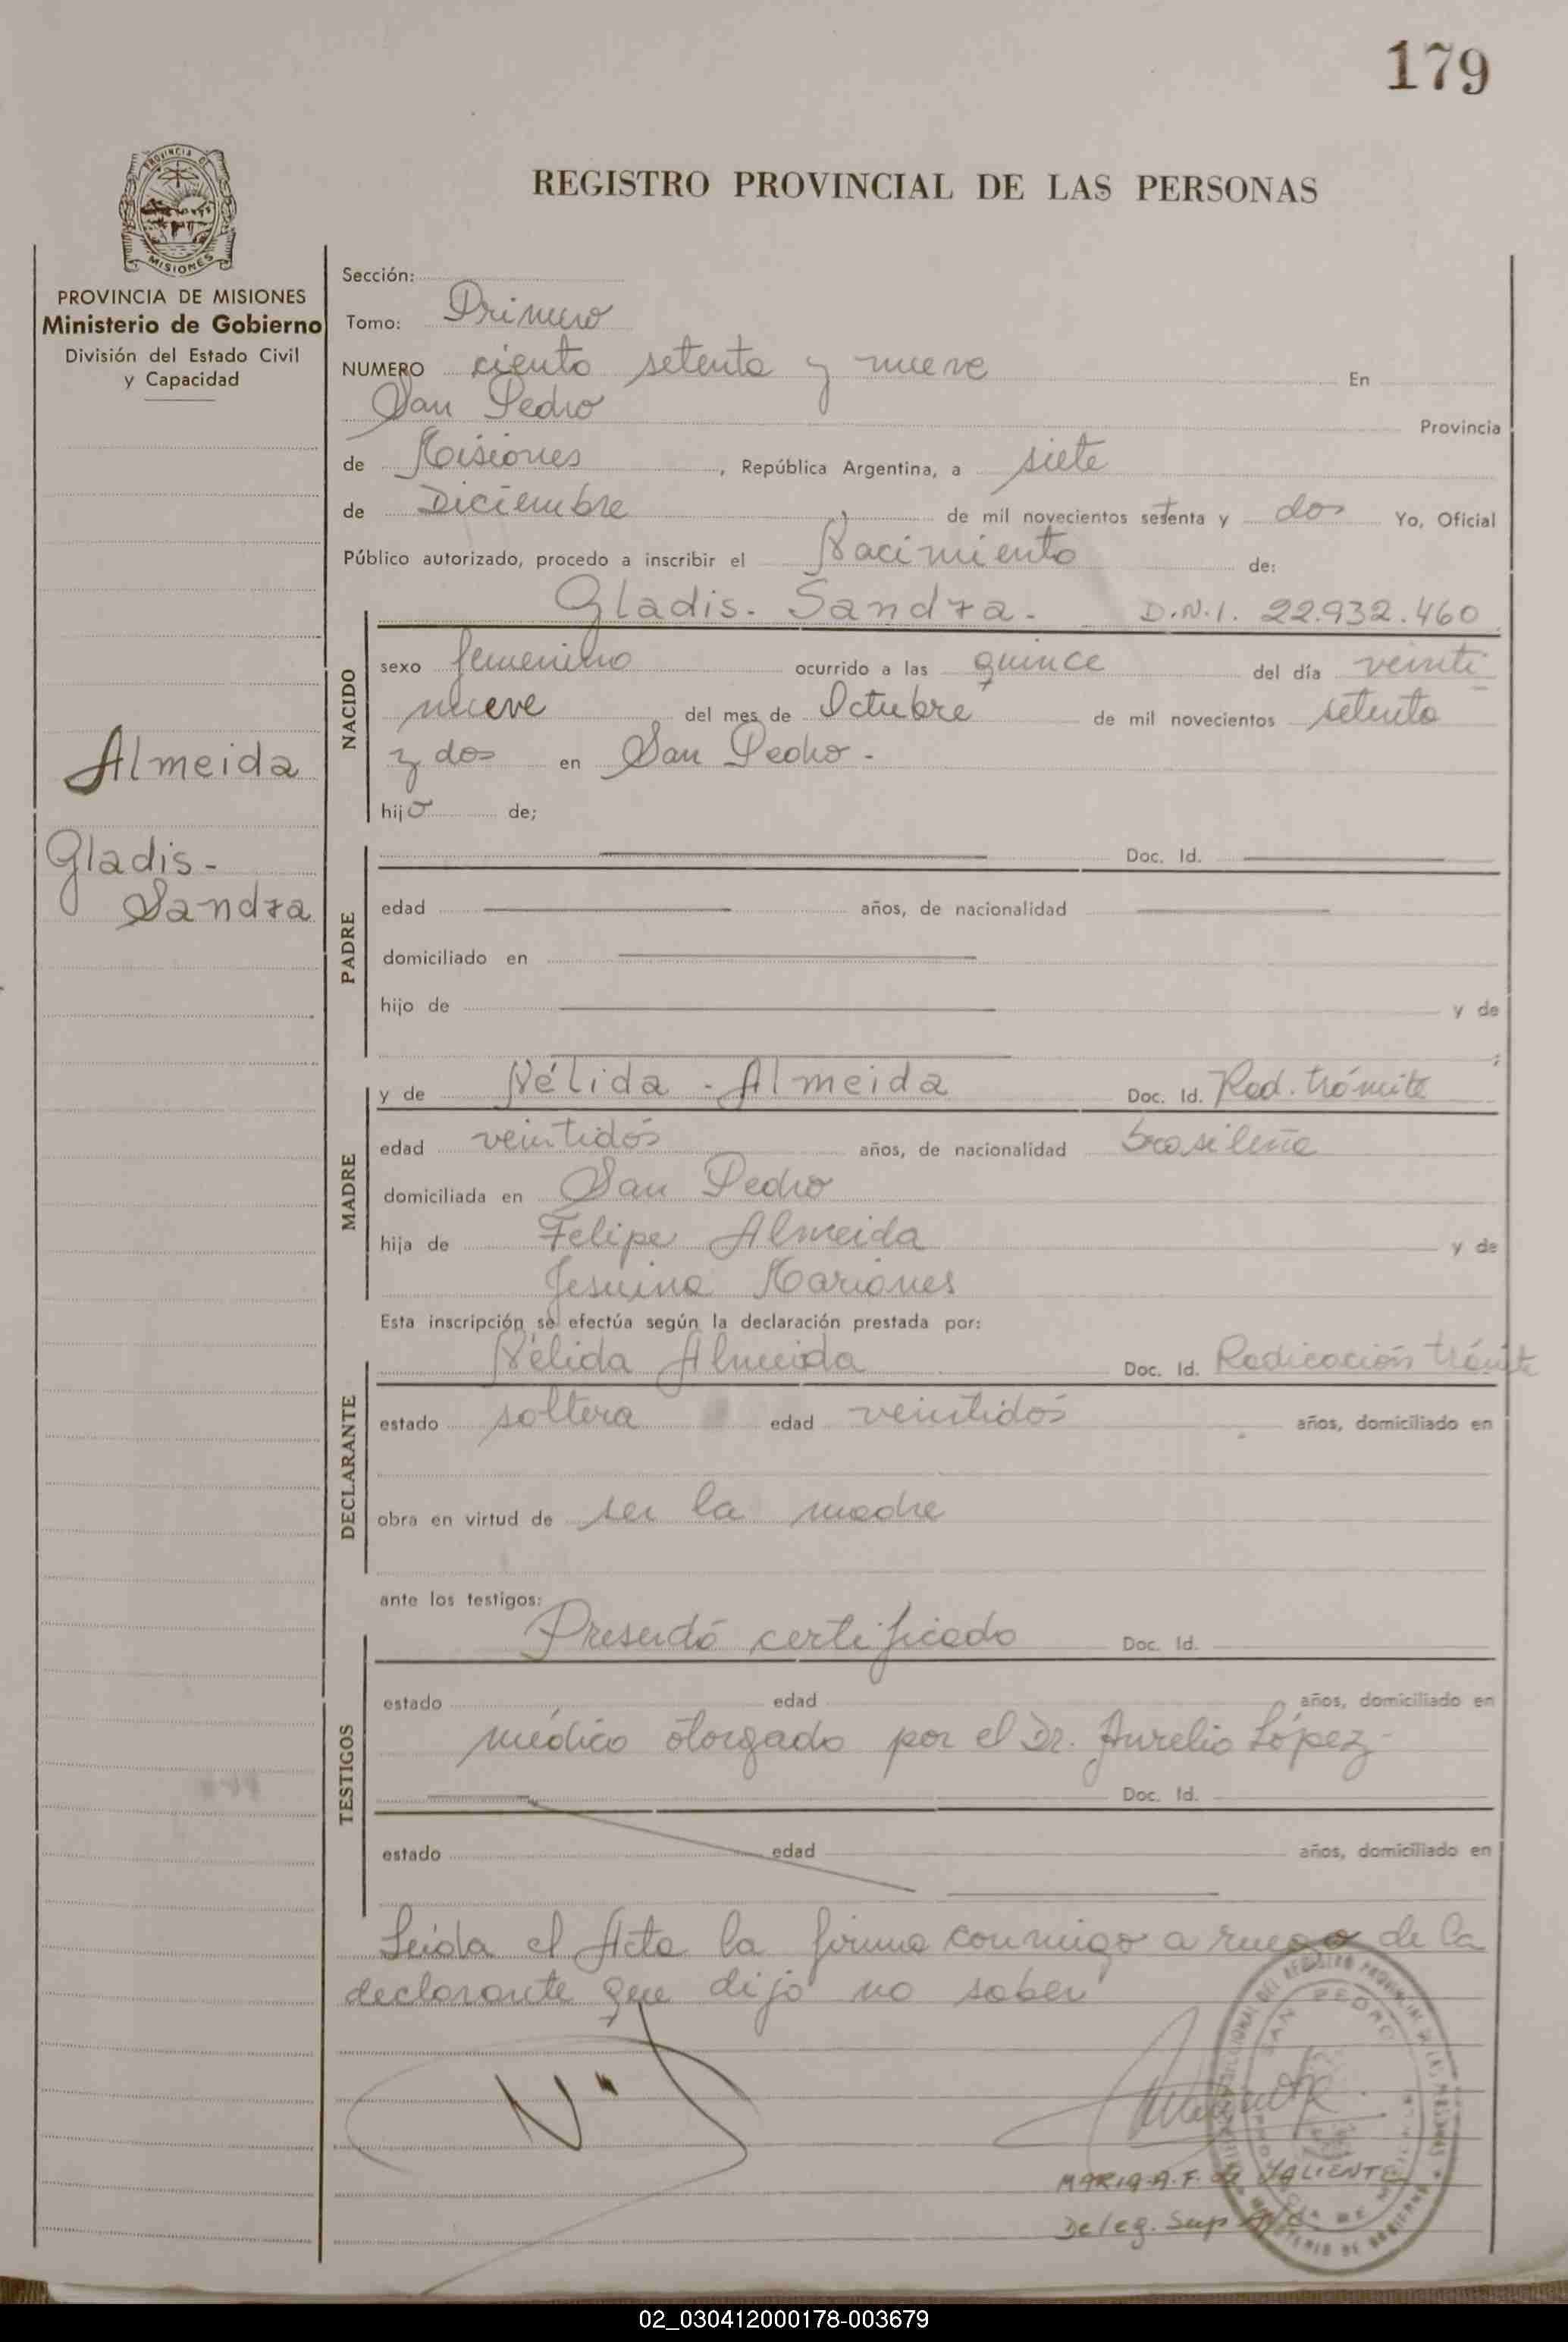 179
PROVINCIA DE
MISIONES
REGISTRO PROVINCIAL DE LAS PERSONAS
PROVINCIA DE MISIONES
Ministerio de Gobierno
División del Estado Civil
y Capacidad
Almeida
Gladis-
Sandra
Sección:
Tomo: Primero
NUMERO ciento setenta y nueve En
San Pedro Provincia
de Misiones, República Argentina, a siete
de Diciembre de mil novecientos setenta y dos Yo, Oficial
Público autorizado, procedo a inscribir el Nacimiento de:
Gladis- Sandra- D.N.I. 22.932.460
NACIDO
sexo femenino ocurrido a las quince del día veinti
nueve del mes de Octubre de mil novecientos setenta
y dos en San Pedro-
hija de;
PADRE
Doc. Id.
edad años, de nacionalidad
domiciliado en
hijo de y de
;
MADRE
y de Nélida - Almeida Doc. Id. Rad. trámite
edad veintidós años, de nacionalidad brasileña
domiciliada en San Pedro
hija de Felipe Almeida y de
Jesuina Mariones
Esta inscripción se efectúa según la declaración prestada por:
DECLARANTE
Nélida Almeida Doc. Id. Radicación trámite
estado soltera edad veintidós años, domiciliado en
obra en virtud de ser la madre
ante los testigos:
TESTIGOS
Presentó certificado Doc. Id.
estado edad años, domiciliado en
médico otorgado por el Dr. Aurelio López-
Doc. Id.
estado edad años, domiciliado en
Leida el Acta la firma conmigo a ruego de la
declarante que dijo no saber
SAN PEDRO
MARIA A. F. de VALIENTE
Deleg. Sup
02_030412000178-003679